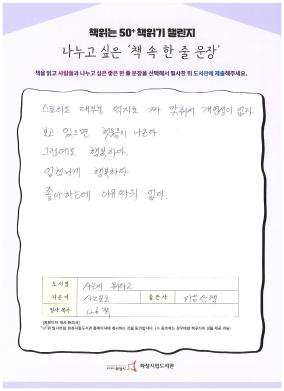 책읽는 50+ 책읽기 챌린지
나누고 싶은 '책 속 한 줄 문장'
책을 읽고 사람들과 나누고 싶은 좋은 한 줄 문장을 선택해서 필사한 뒤 도서관에 제출해주세요.
스토리는 대부분 억지로 짜 맞춰져 개연성이 없다.
보고 있으면 헛웃음이 나온다.
그런데도 행복하다.
엄청나게 행복하다.
좋아하는데 이유따위 없다.
도서명
지은이 사노 요코 출판사 마음산책
필사 쪽수 126 쪽
화성시립도서관